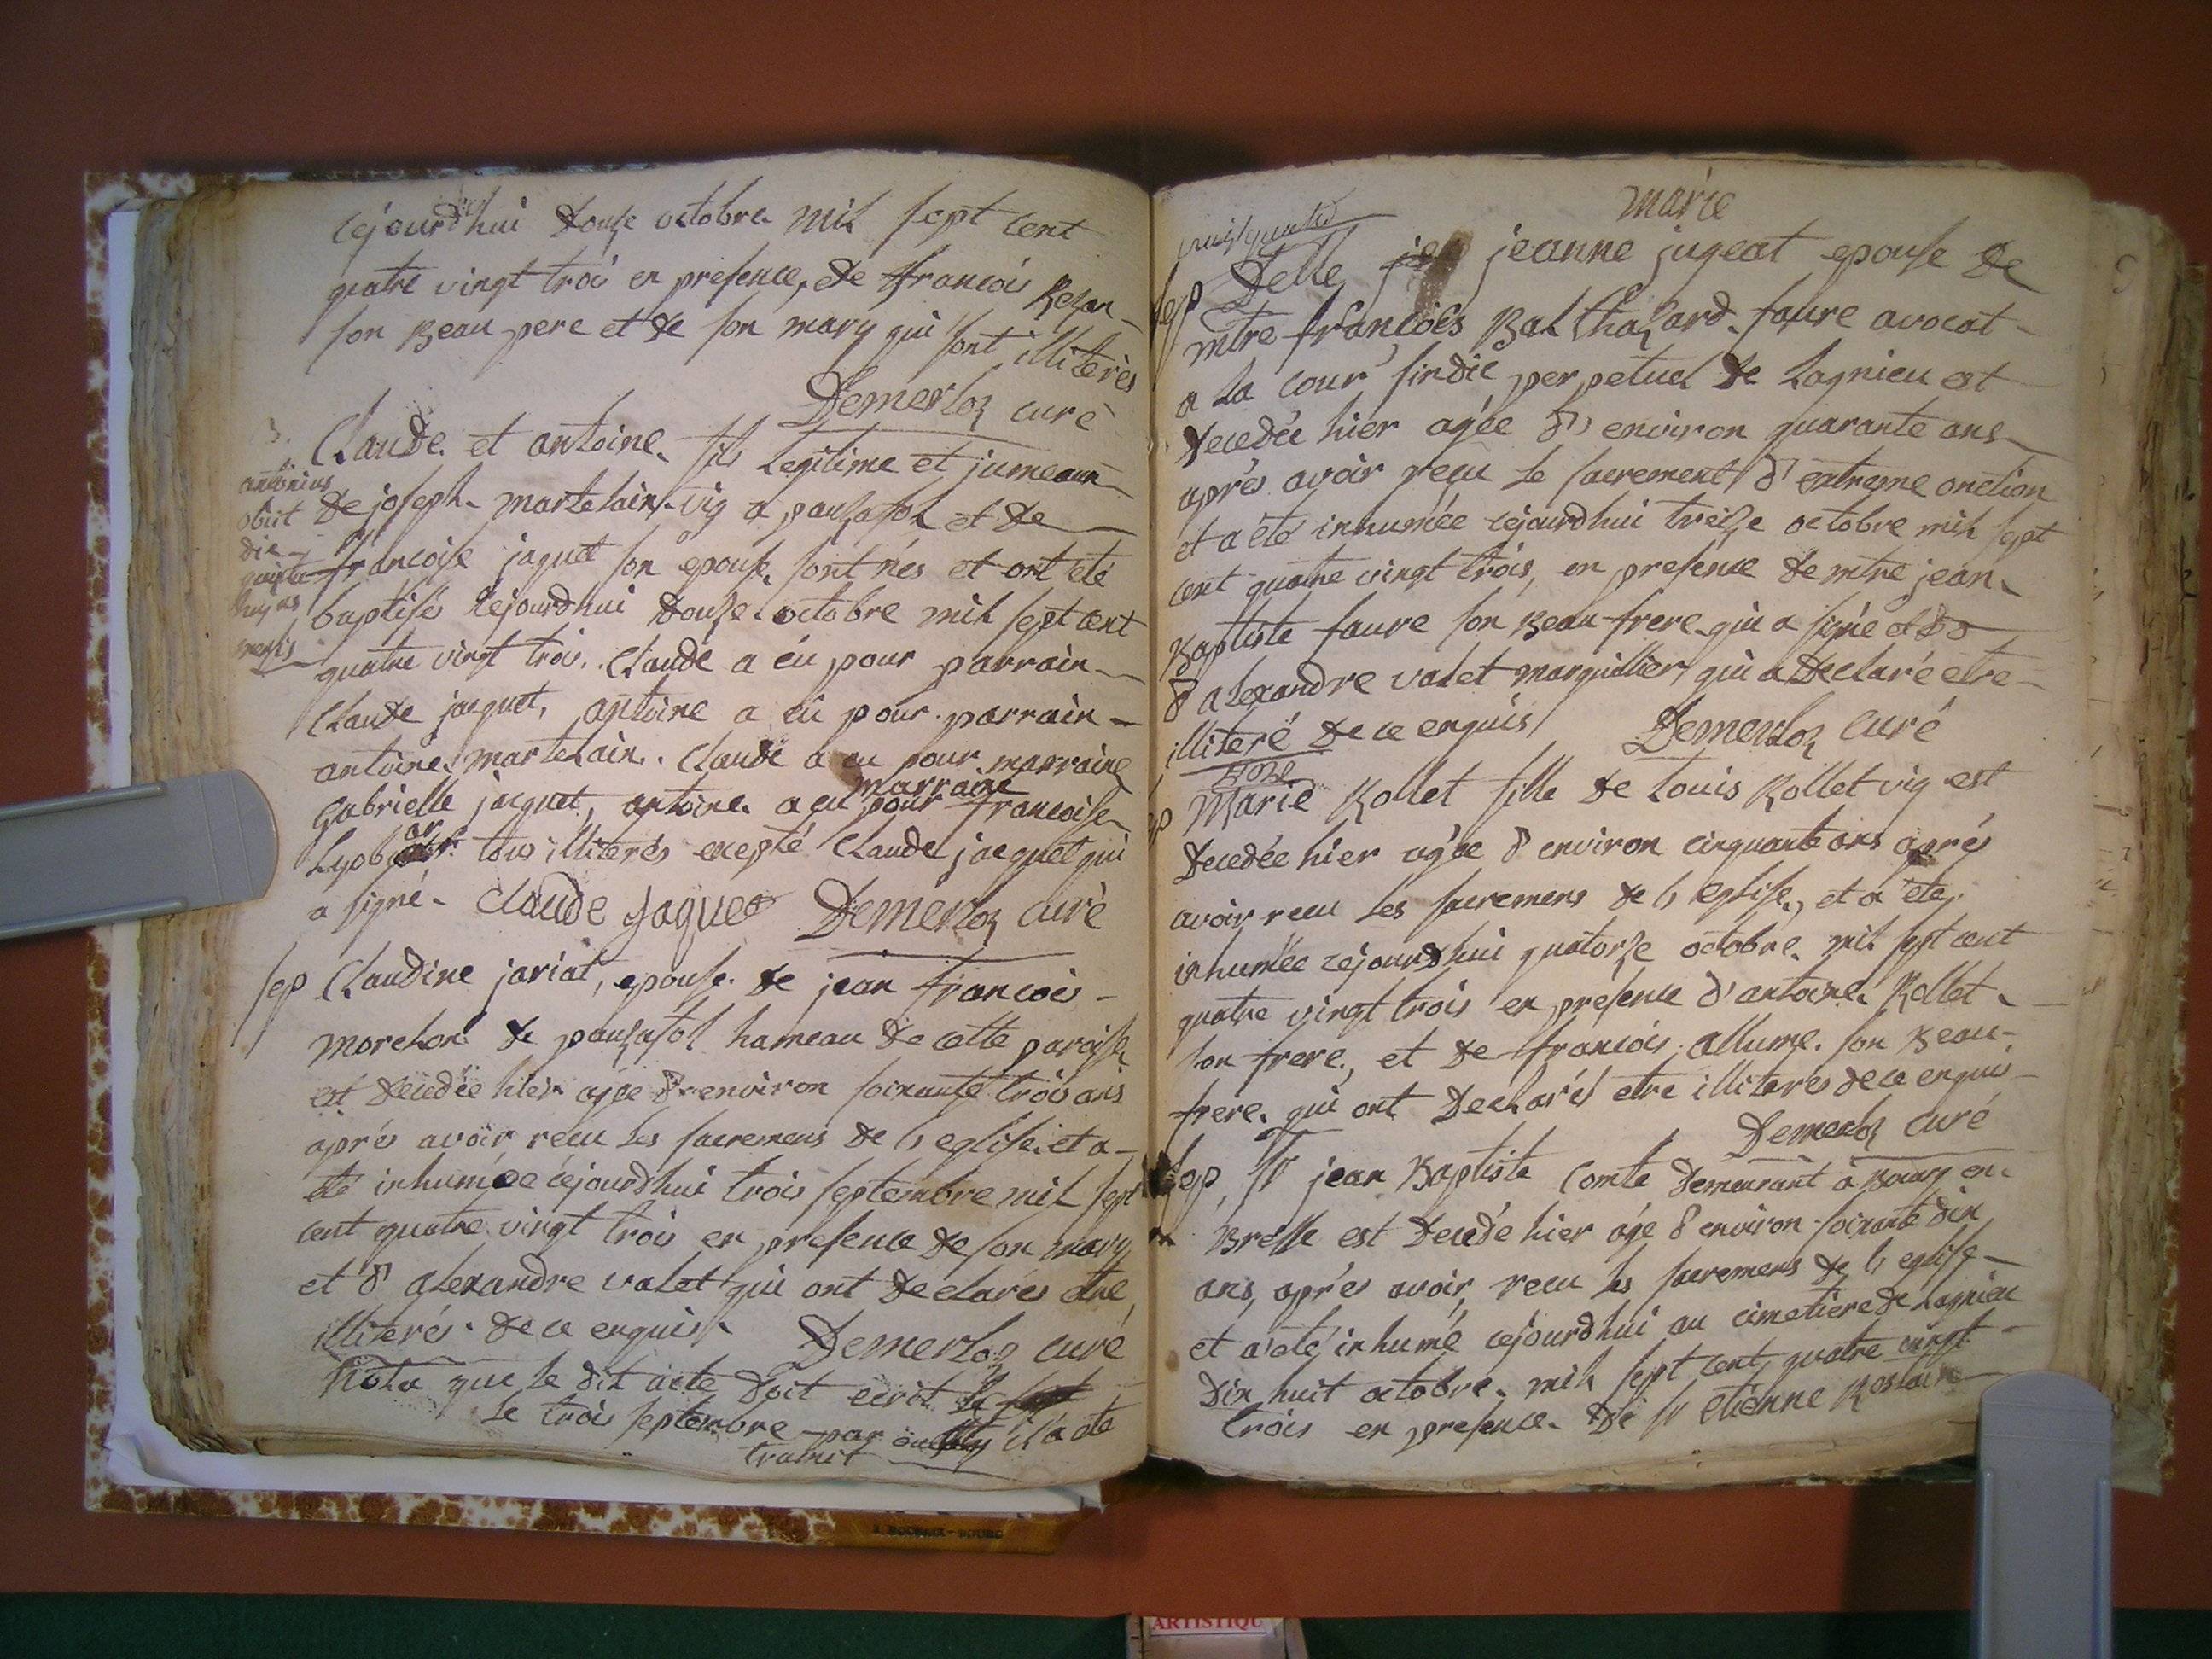 cejourdhui douze octobre mil sept cent
quatre vingt trois en presence, de francois
son Beau pere et de son mary qui sont illiterés
Demerloz curé
Claude et antoine fils legitime et jumeaux
antonius
obiit
die
quinta
hujus
mensis
de joseph martelain vig a pauzafol et de
francoise jaquet son epouse sont nés et ont été
baptisés cejourdhui douze octobre mil sept cent
quatre vingt trois. Claude a eu pour parrain
Claude jacquet, antoine a eu pour parrain
antoine martelain. Claude a eu pour marraine
Gabrielle jacquet, antoine a eu pour marraine francoise
tous illiterés excepté Claude jacquet qui
a signé. Claude Jaques Demerloz curé
sep Claudine jariat, epouse de jean francois
morelon de pauzafol hameau de cette paroisse
est decedée hier agée d'environ soixante trois ans
aprés avoir recu les sacremens de l'eglise et a
été inhumée cejourdhui trois septembre mil sept
cent quatre vingt trois en presence de son mary
et d'alexandre valet qui ont declarés etre
illiterés de ce enquis. Demerloz curé
Nota que le dit acte doit ecrit
le trois septembre par il a ete
marie
Delle jeanne jugeat epouse de
sep
mtre francois Balthazard faure avocat
a la cour sindic perpetuel de Lagnieu est
decedée hier agée d'environ quarante ans
aprés avoir reçu le sacrement d'extreme onction
et a eté inhumée cejourdhui treize octobre mil sept
cent quatre vingt trois, en presence de mtre jean
Baptiste faure son Beau frere qui a signé et
d'alexandre valet marguillier qui a declaré etre
illiteré de ce enquis Demerloz curé
sep Marie Rollet fille de Louis Rollet vig est
decedée hier agée d'environ cinquante ans aprés
avoir recu les sacremens de l'eglise, et a eté
inhumée cejourdhui quatorze octobre mil sept cent
quatre vingt trois en presence d'antoine Rollet
son frere, et de francois allume son Beau
frere qui ont declarés etre illiterés de ce enquis
Demerloz curé
sep, sr jean Baptiste Comte demeurant à Bourg en
Bresse est decedé hier age d'environ soixante dix
ans, aprés avoir recu les sacremens de l'eglise
et a eté inhumé cejourdhui au cimetiere de Lagnieu
dix huit octobre mil sept cent quatre vingt
trois en presence de sr etienne Roslain
ARTISTIQU